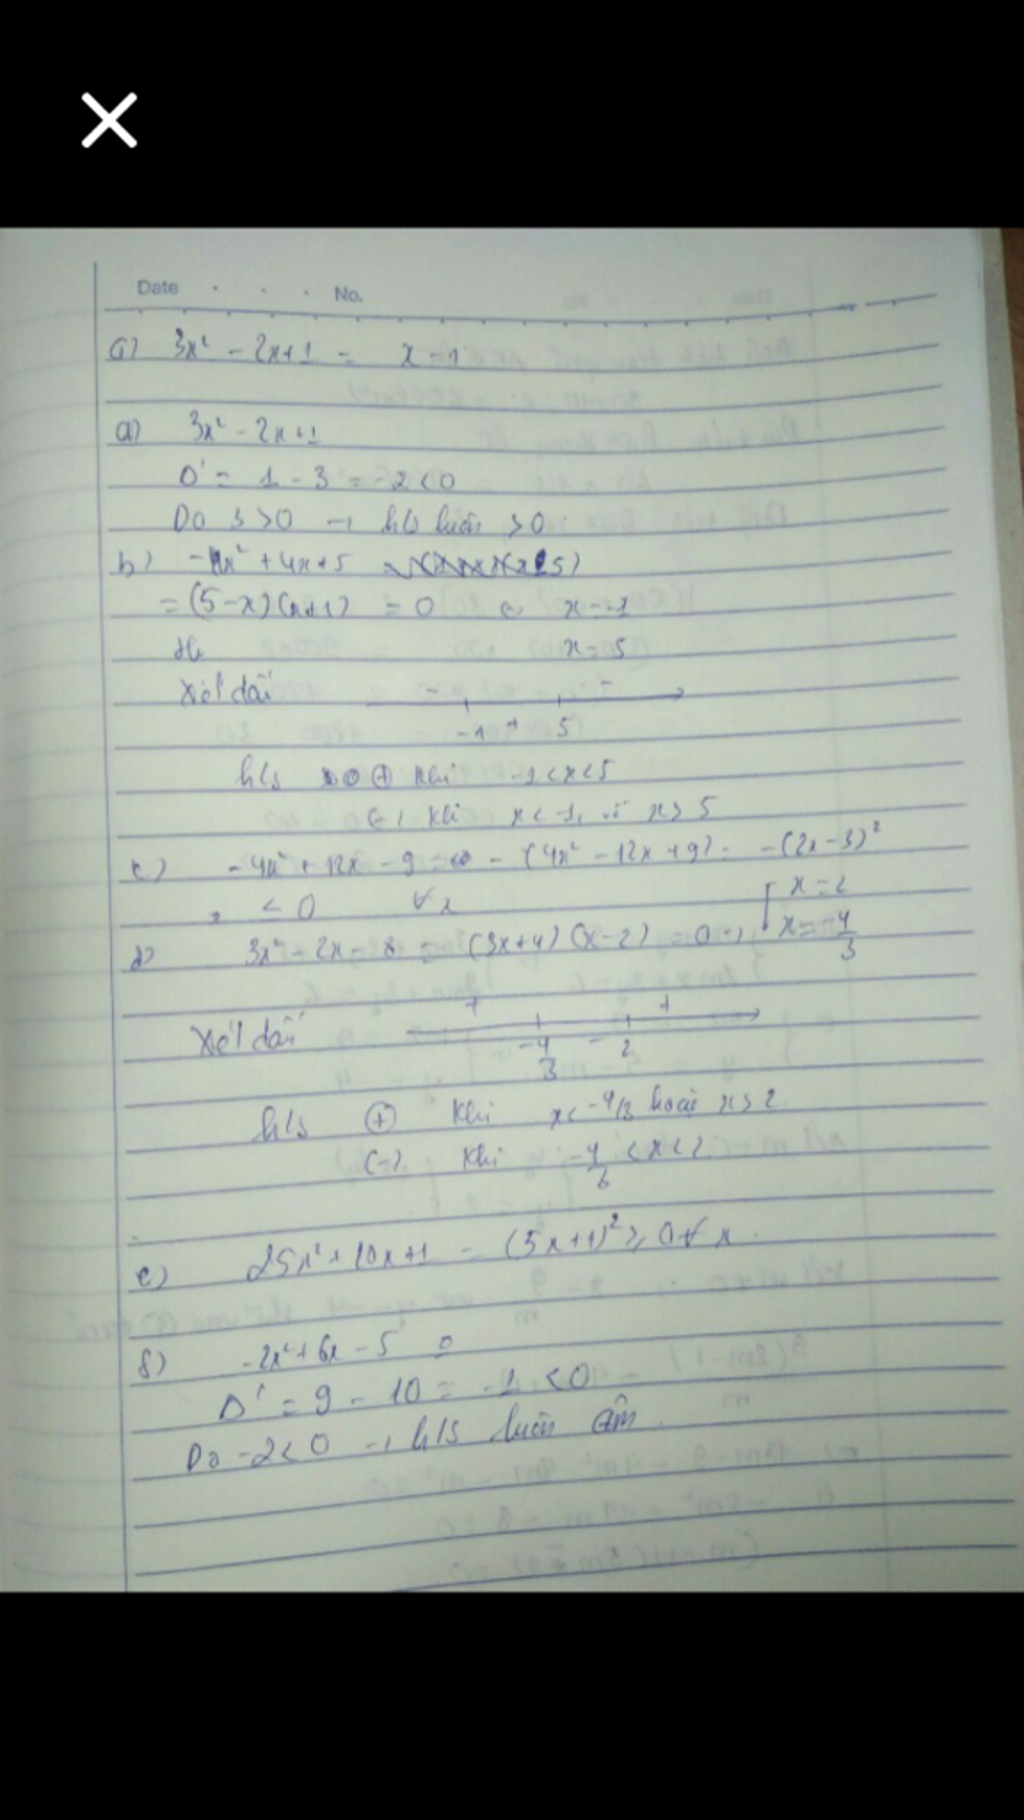 Date . . . No.
a) 3x² - 2x+1 = x = 1
a) 3x² - 2x+1
Δ' = 1 - 3 = -2 < 0
Do 3 > 0 → h/s luôn > 0
b) -x² + 4x+5
= (5-x)(x+1) = 0 x = -1
x = 5
Xét dấu - -
-1 + 5
h/s ⊕ khi -1 < x < 5
(-) khi x < -1, x > 5
c) -4x² + 12x - 9 = - (4x² - 12x + 9) = -(2x-3)²
< 0 ∀x
d) 3x² - 2x - 8 = (3x+4)(x-2) = 0 → [ x = 2
x = -4/3
Xét dấu + +
-4/3 - 2
h/s ⊕ khi x < -4/3 hoặc x > 2
(-) khi -4/3 < x < 2
e) 25x² + 10x+1 = (5x+1)² ≥ 0 ∀x
f) -2x² + 6x - 5
Δ' = 9 - 10 = -1 < 0
Do -2 < 0 → h/s luôn âm.